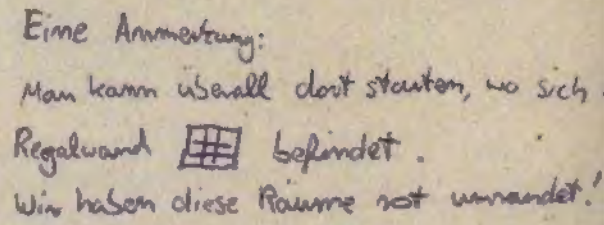 Eine Anmerkung:
Man kann überall dort starten, wo sich
Regalwand befindet.
Wir haben diese Räume rot umrandet!